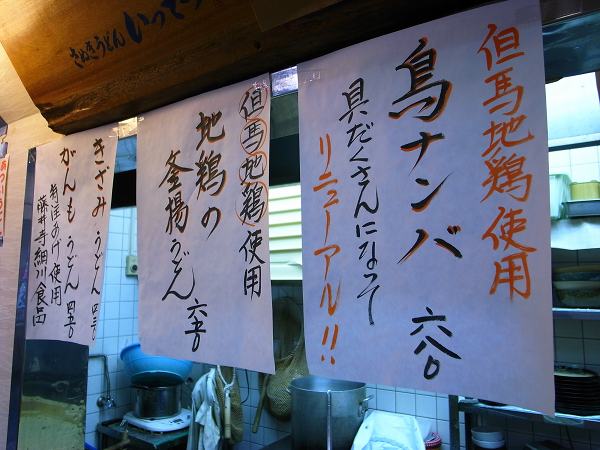 さぬきうどん いってつ
但馬地鶏使用
鳥ナンバ 六八〇
具だくさんになって
リニューアル!!
但馬地鶏使用
地鶏の
釜揚うどん 六五〇
きざみうどん 四三〇
がんもうどん 四五〇
藤井寺細川食品